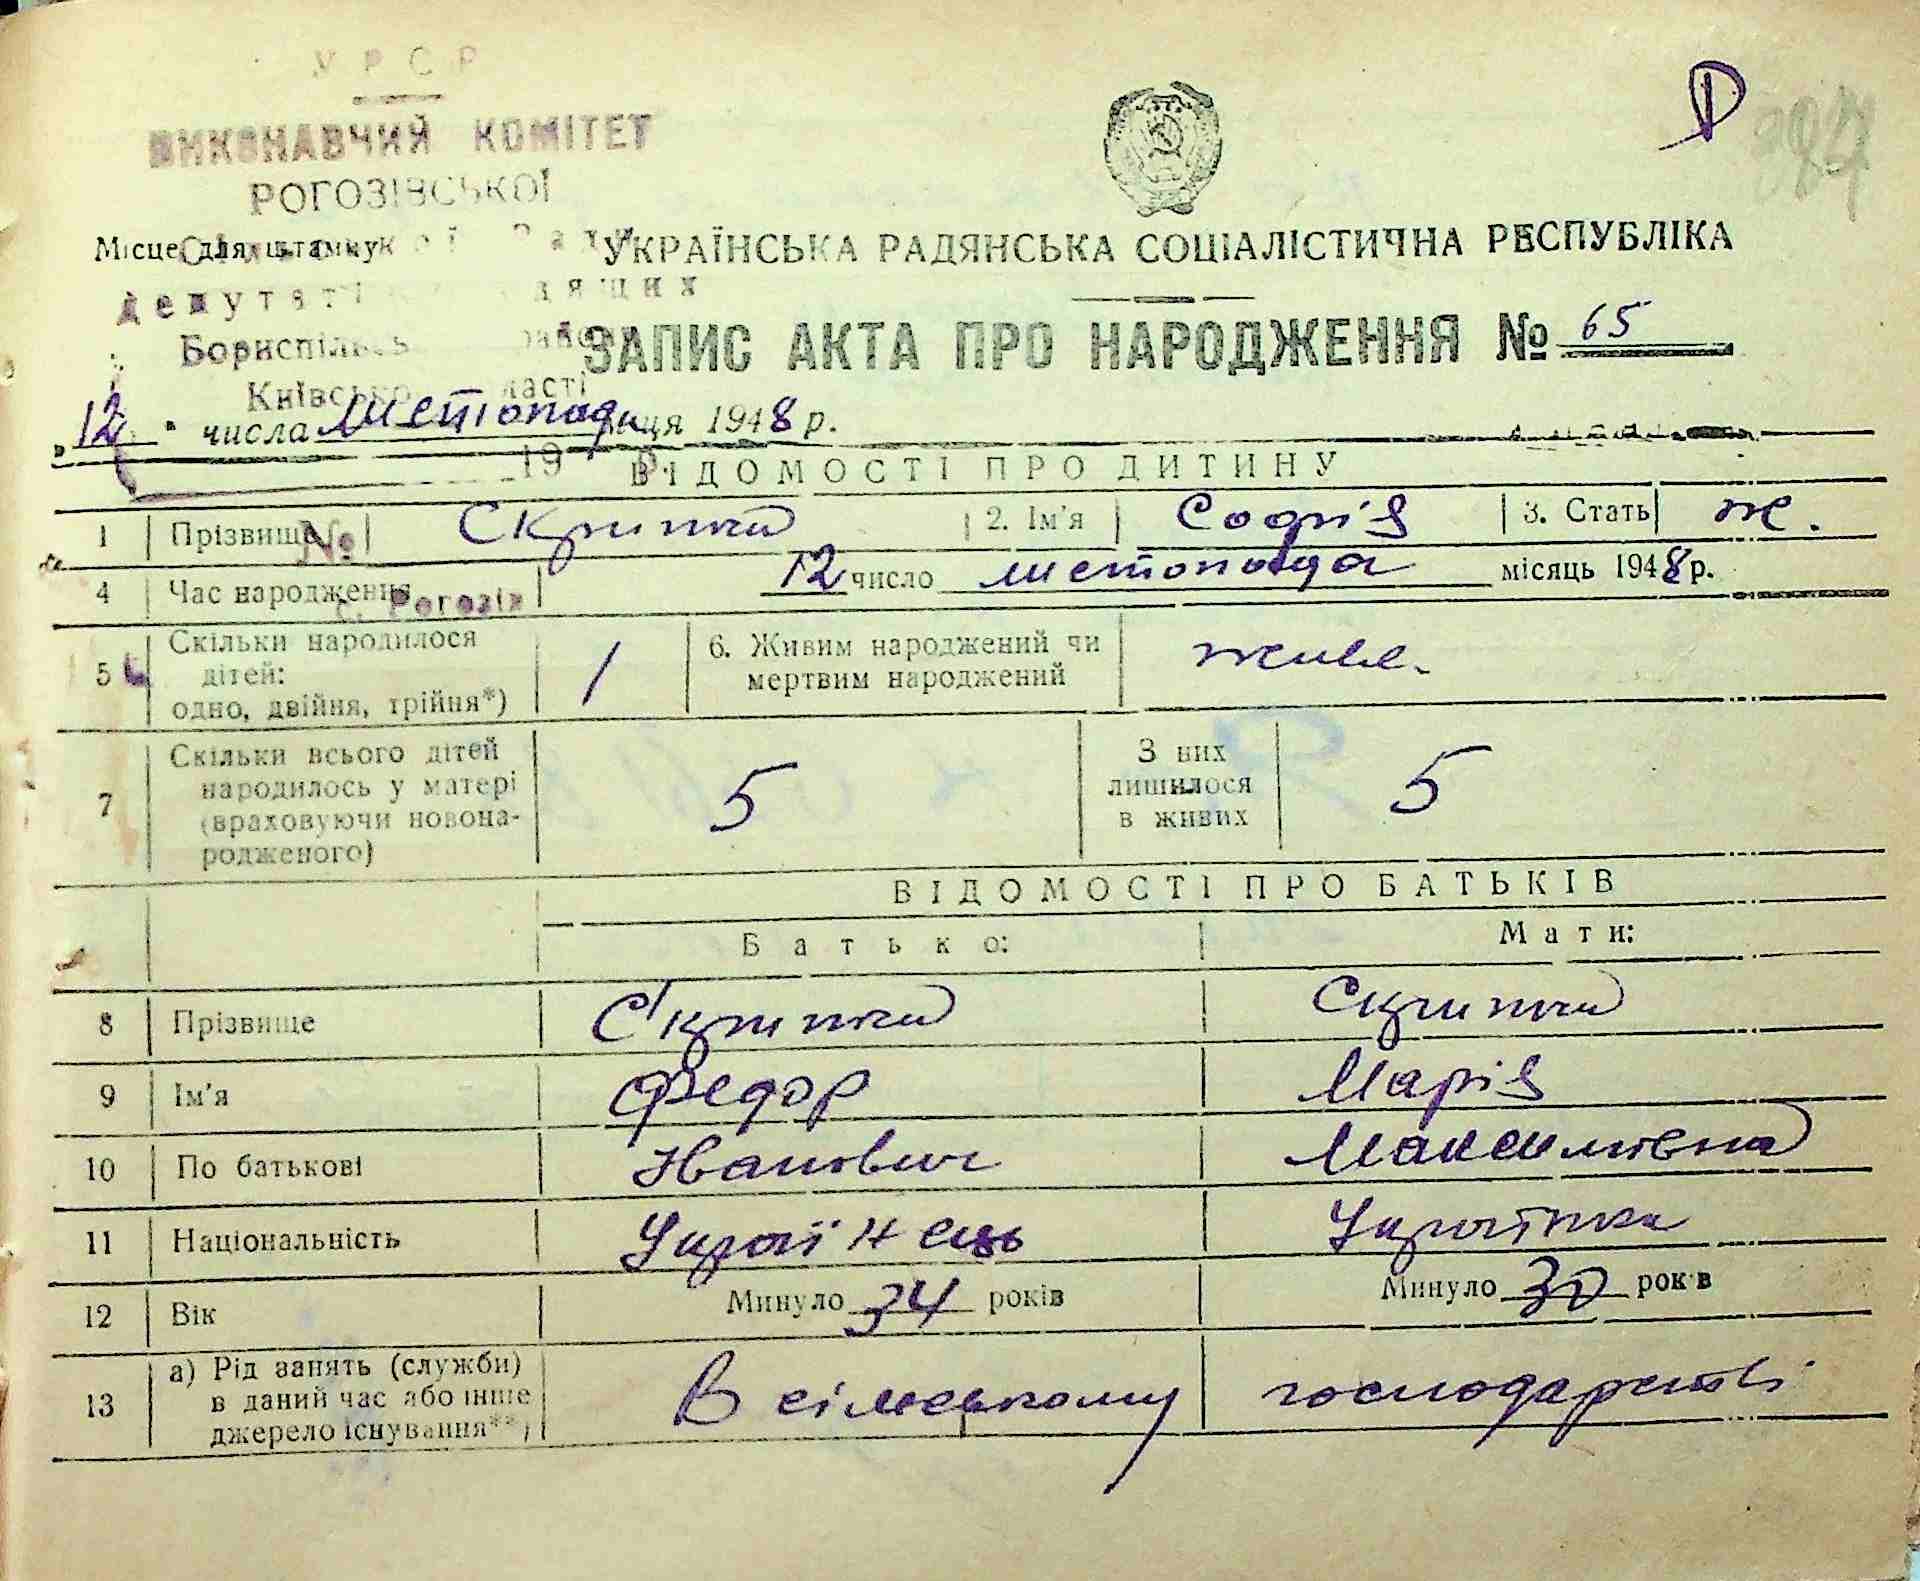 У Р С Р
ВИКОНАВЧИЙ КОМІТЕТ
РОГОЗІВСЬКОЇ
Місце для штампу
УКРАЇНСЬКА РАДЯНСЬКА СОЦІАЛІСТИЧНА РЕСПУБЛІКА
ЗАПИС АКТА ПРО НАРОДЖЕННЯ № 65
„12" числа листопада місяця 1948 р.
19 р.
ВІДОМОСТІ ПРО ДИТИНУ
1 Прізвище Скрипка 2. Ім'я Софія 3. Стать ж.
№
4 Час народження 12 число листопада місяць 1948 р.
с. Рогозів
5 Скільки народилося дітей: одно, двійня, трійня*) 1 6. Живим народжений чи мертвим народжений живе.
7 Скільки всього дітей народилось у матері (враховуючи новонародженого) 5 З них лишилося в живих 5
ВІДОМОСТІ ПРО БАТЬКІВ
Батько: Мати:
8 Прізвище Скрипка Скрипка
9 Ім'я Федор Марія
10 По батькові Іванович Максимівна
11 Національність Українець Українка
12 Вік Минуло 34 років Минуло 30 років
13 а) Рід занять (служби) в даний час або інше джерело існування**) В сільському господарстві